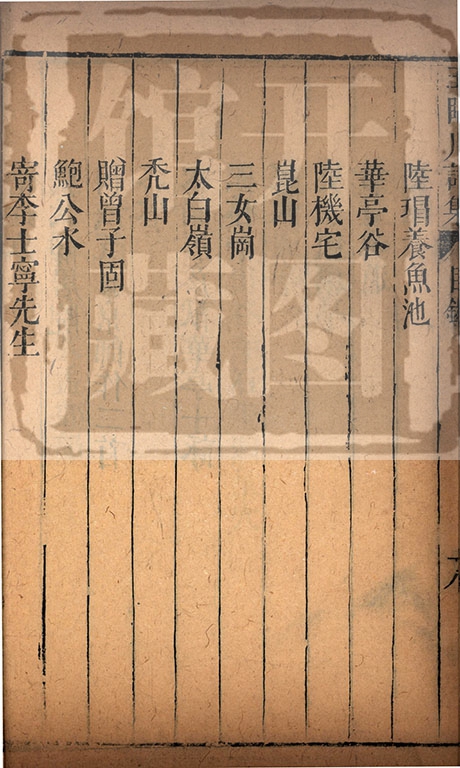 陸瑁養魚池
華亭谷
陸機宅
崑山
三女崗
太白嶺
禿山
贈曾子固
鮑公水
寄李士寧先生